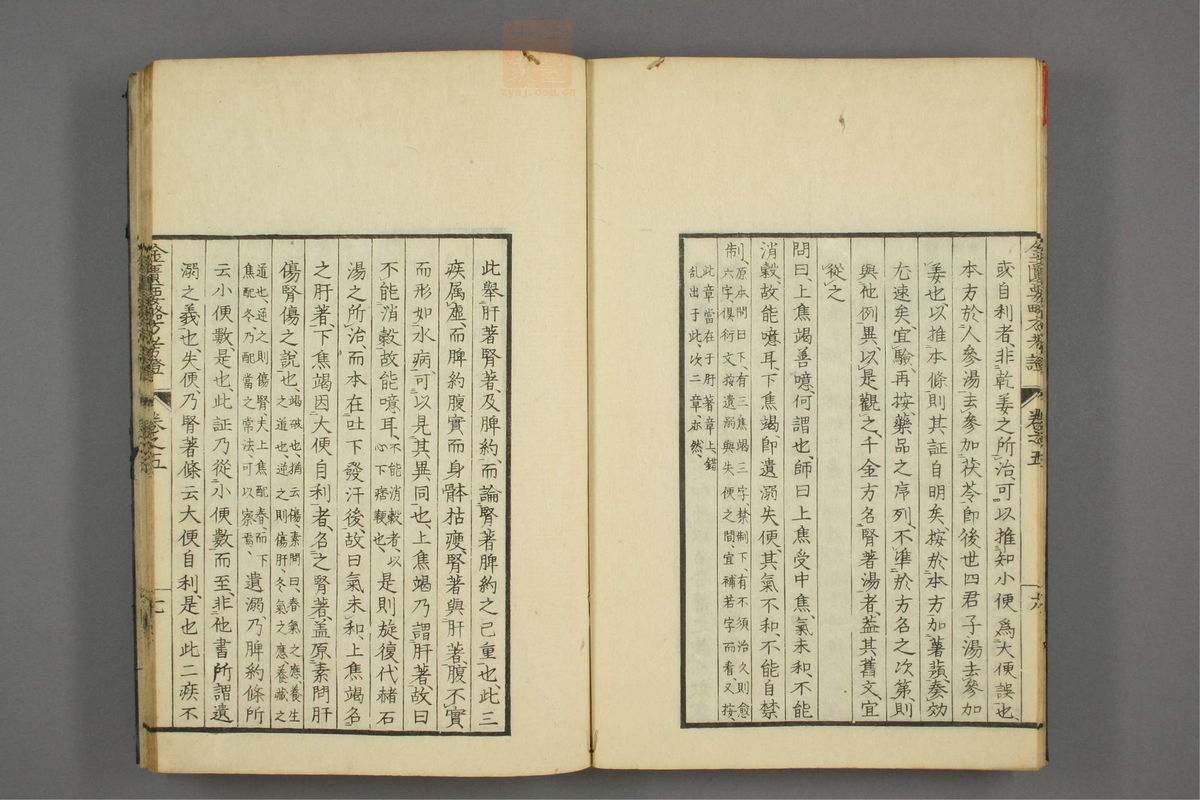 或自利者、非乾姜之所治、可以推知小便爲大便誤也、
本方於人參湯去參加茯苓、即後世四君子湯去參加
姜也、以推本條則其証自明矣、按於本方加薯蕷、奏効
尤速矣、宜驗、再按藥品之序列、不準於方名之次第、則
與他例異、以是觀之、千金方名腎著湯者、蓋其舊文、宜
從之
問曰、上焦竭善噫、何謂也、師曰上焦受中焦、氣未和、不能
消穀、故能噫耳、下焦竭、即遺溺失便、其氣不和、不能自禁
制、原本問曰下、有三焦竭三字、禁制下、有不須治久則愈
六字、俱衍文、按遺溺與失便之間、宜補若字而看、又按
此章當在于肝著章上、錯
乱出于此、次二章亦然、
金匱要略方考證 卷之五
此舉肝著腎著、及脾約、而論腎著脾約之已重也、此三
疾属虛、而脾約腹實而身體枯瘦、腎著與肝著、腹不實
而形如水病、可以見其異同也、上焦竭乃謂肝著、故曰
不能消穀故能噫耳、不能消穀者、以
心下痞鞕也、是則旋復代赭石
湯之所治、而本在吐下發汗後、故曰氣未和、上焦竭名
之肝著、下焦竭因大便自利者、名之腎著、蓋原素問肝
傷腎傷之說也、竭破也、猶云傷、素問曰、春氣之應、養生
之道也、逆之則傷肝、冬氣之應、養藏之
道也、逆之則傷腎、夫上焦配春、而下
焦配冬、乃配當之常法、可以察焉、遺溺乃脾約條所
云小便數是也、此証乃從小便數而至、非他書所謂遺
溺之義也、失便、乃腎著條云大便自利、是也此二疾不
金匱要略方考證 卷之五